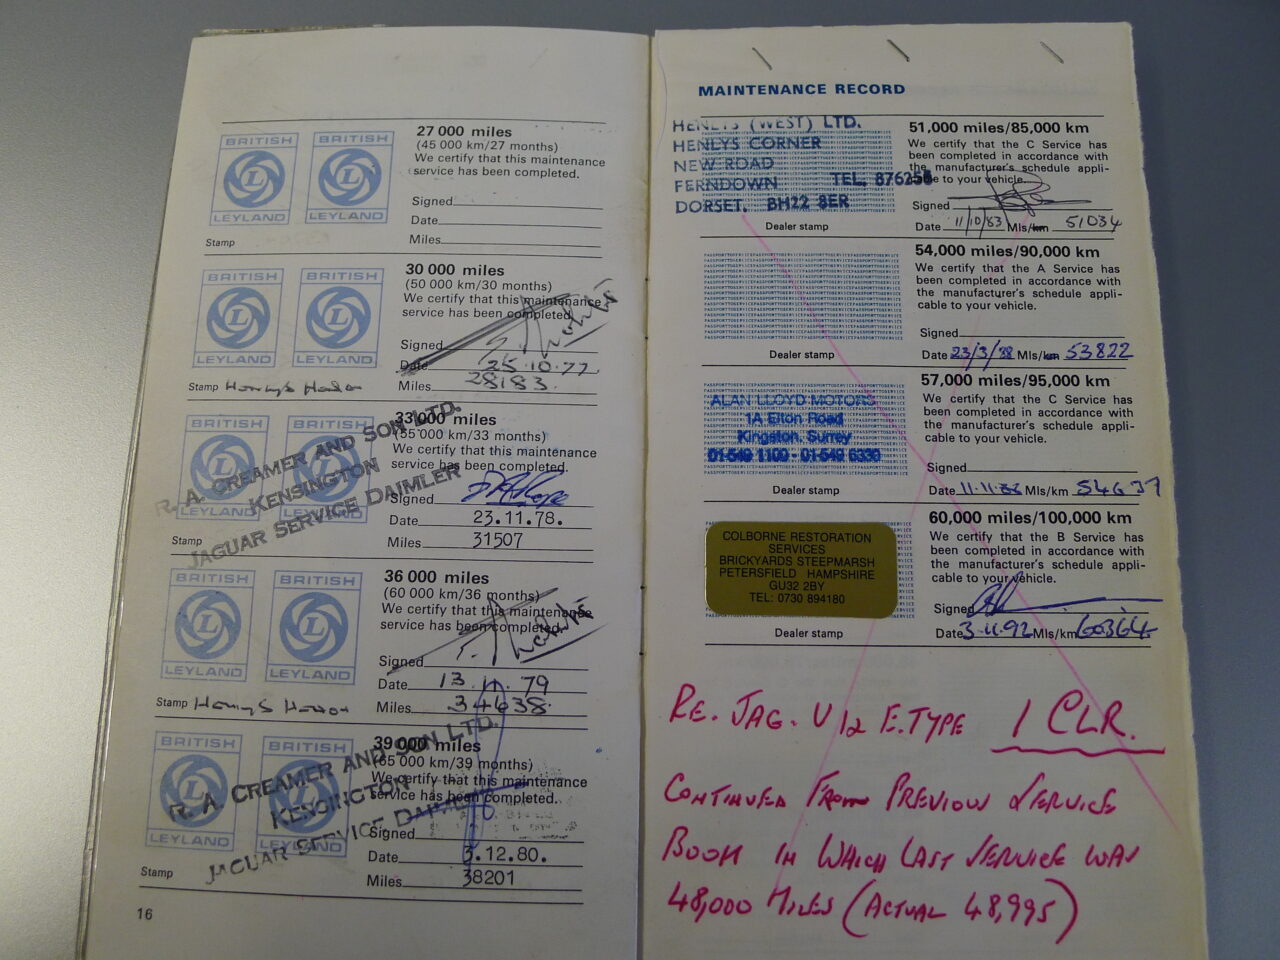 BRITISH
LEYLAND
BRITISH
LEYLAND
Stamp
27 000 miles
(45 000 km/27 months)
We certify that this maintenance
service has been completed.
Signed
Date
Miles
BRITISH
LEYLAND
BRITISH
LEYLAND
Stamp
30 000 miles
(50 000 km/30 months)
We certify that this maintenance
service has been completed.
Signed
Date 25.10.77
Miles 28183.
BRITISH
LEYLAND
R. A. CREAMER AND SON LTD.
KENSINGTON
JAGUAR SERVICE DAIMLER
Stamp
33 000 miles
(55 000 km/33 months)
We certify that this maintenance
service has been completed.
Signed
Date 23.11.78.
Miles 31507
BRITISH
LEYLAND
BRITISH
LEYLAND
Stamp
36 000 miles
(60 000 km/36 months)
We certify that this maintenance
service has been completed.
Signed
Date 13.11.79
Miles 34638
BRITISH
LEYLAND
BRITISH
LEYLAND
R. A. CREAMER AND SON LTD.
KENSINGTON
JAGUAR SERVICE DAIMLER
Stamp
39 000 miles
(65 000 km/39 months)
We certify that this maintenance
service has been completed.
Signed
Date 3.12.80.
Miles 38201
16
MAINTENANCE RECORD
HENLYS (WEST) LTD.
HENLYS CORNER
NEW ROAD
FERNDOWN TEL. 876255
DORSET. BH22 8ER
Dealer stamp
51,000 miles/85,000 km
We certify that the C Service has
been completed in accordance with
the manufacturer's schedule appli-
cable to your vehicle.
Signed
Date 11/10/83 Mls/km 51034
Dealer stamp
54,000 miles/90,000 km
We certify that the A Service has
been completed in accordance with
the manufacturer's schedule appli-
cable to your vehicle.
Signed
Date 23/3/88 Mls/km 53822
ALAN LLOYD MOTORS
1A Elton Road
Kingston, Surrey
01-549 1100 - 01-549 6330
Dealer stamp
57,000 miles/95,000 km
We certify that the C Service has
been completed in accordance with
the manufacturer's schedule appli-
cable to your vehicle.
Signed
Date Mls/km 54637
COLBORNE RESTORATION
SERVICES
BRICKYARDS STEEPMARSH
PETERSFIELD HAMPSHIRE
GU32 2BY
TEL: 0730 894180
Dealer stamp
60,000 miles/100,000 km
We certify that the B Service has
been completed in accordance with
the manufacturer's schedule appli-
cable to your vehicle.
Signed
Date 3.11.92 Mls/km 60364
RE. JAG. V12 E.TYPE 1 CLR.
CONTINUED FROM PREVIOUS SERVICE
BOOK IN WHICH LAST SERVICE WAS
48,000 MILES (ACTUAL 48,995)